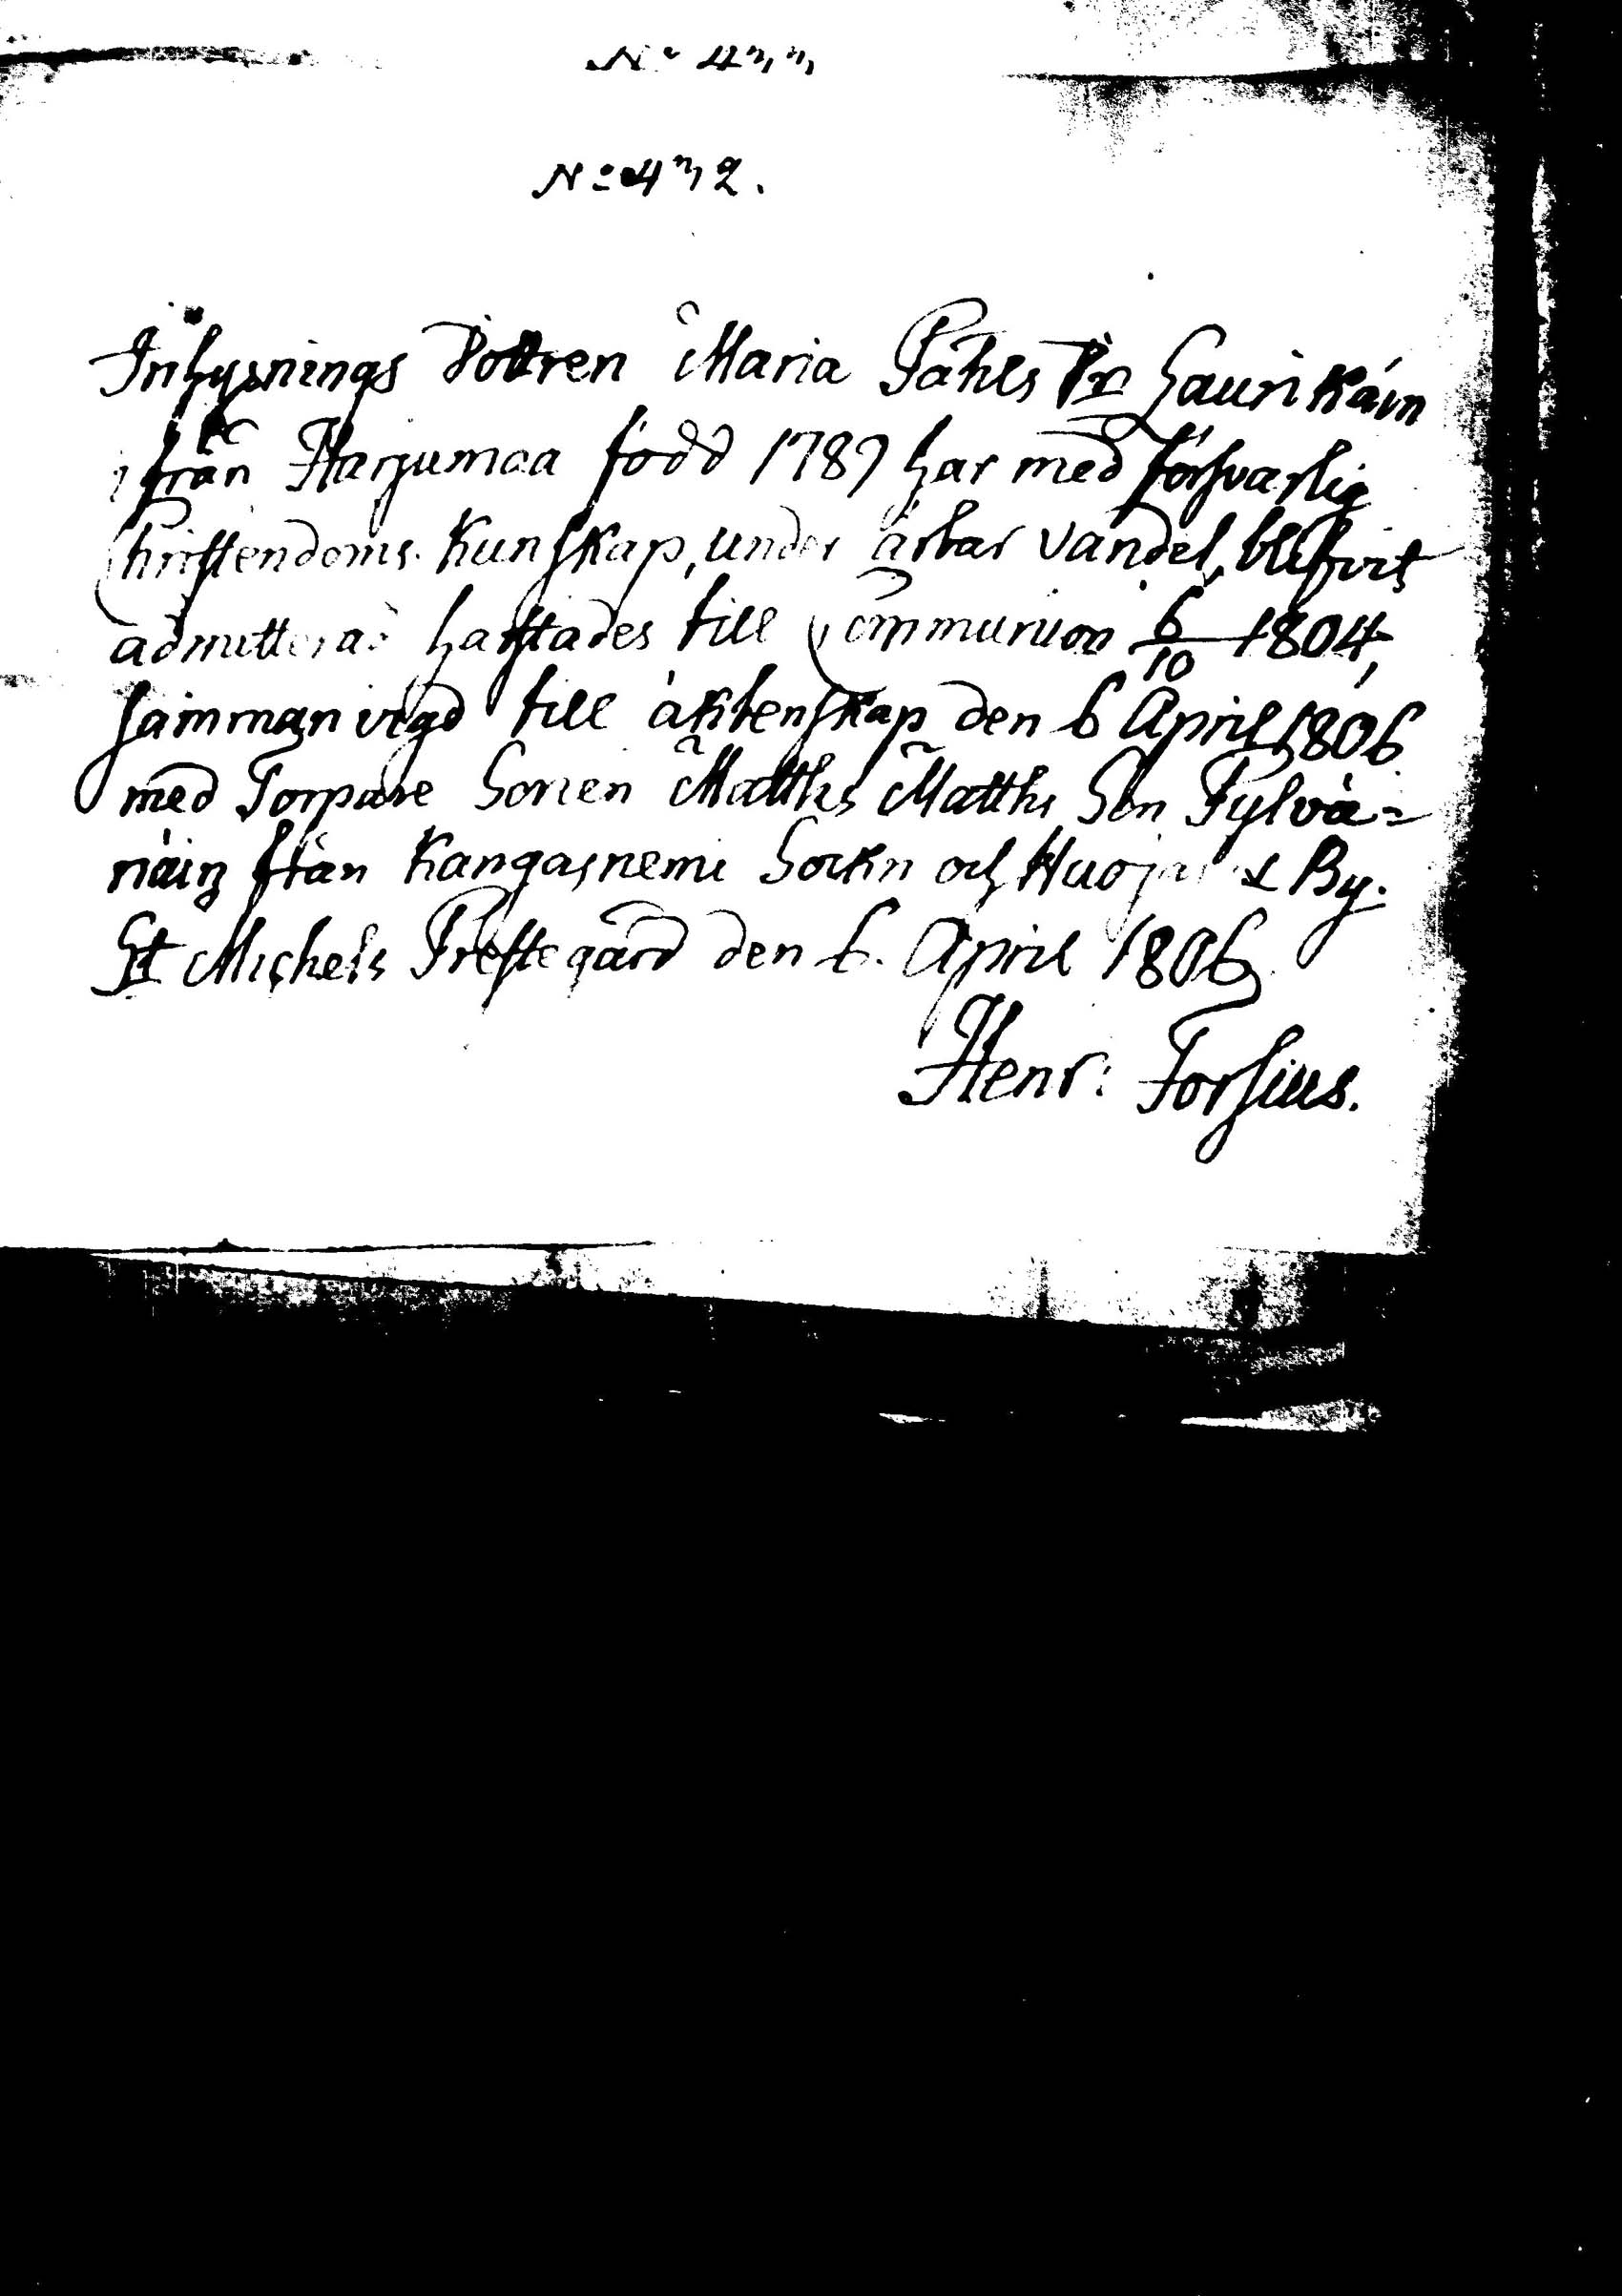 No 433
No 432.
Inhysnings Dottren Maria Påhls Dr Haurikáin
ifrån Harjumaa född 1787 har med försvarlig
Christendoms Kunskap, under ärbar vandel, blifvit
admitterad hastades till Communion 6/10 1804,
samman vigd till äktenskap den 6 April 1806
med Torpare Sonen Matths Matths Son Pylvä=
näin från Kangasnemi Sockn och By.
St Michels Prestegård den 6. April 1806.
Henr: Forsius.